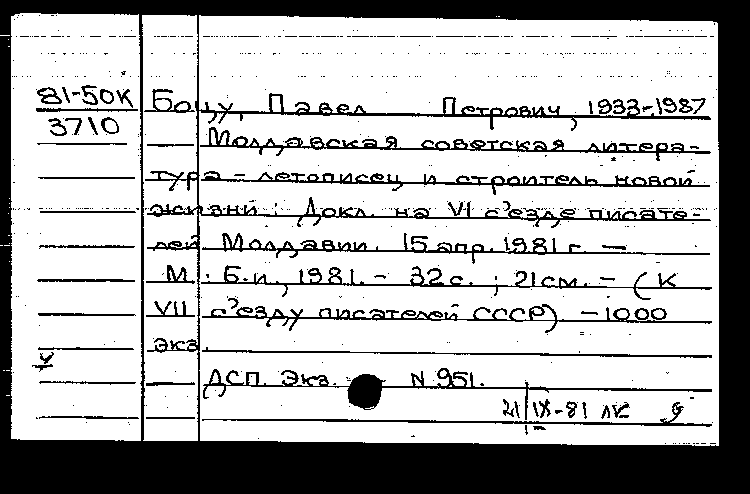 81-50К
3710
Боцу, Павел Петрович, 1933-1987
Молдавская советская литера-
тура - летописец и строитель новой
жизни: Докл. на VI с'езде писате-
лей Молдавии. 15 апр. 1981 г. —
М.: Б.и., 1981. - 32 с.; 21 см. - (К
VII с'езду писателей СССР). - 1000
экз.
ДСП. Экз. N 951.
21/IX-81